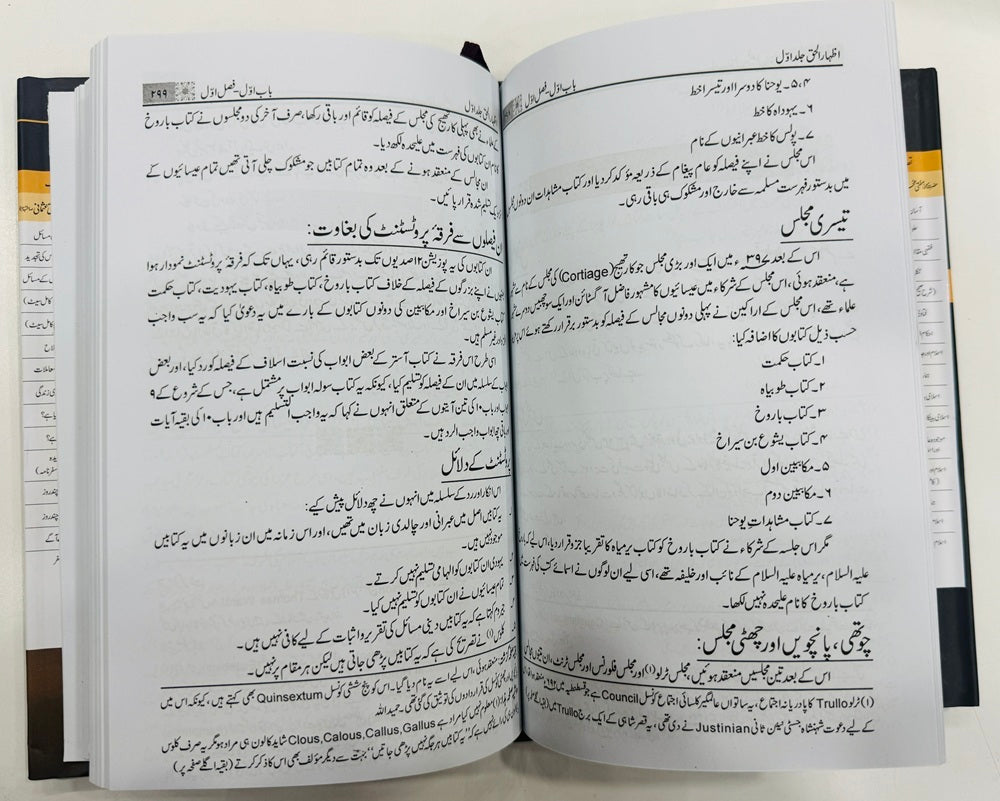 اظہار الحق جلد اوّل
باب اوّل۔ فصل اوّل
۴، ۵۔ یوحنا کا دوسرا اور تیسرا خط
۶۔ یہوداہ کا خط
۷۔ پولس کا خط عبرانیوں کے نام
اس مجلس نے اپنے فیصلہ کو عام پیغام کے ذریعہ مؤکد کر دیا اور کتاب مشاہدات ان دونوں
میں بدستور فہرست مسلمہ سے خارج اور مشکوک ہی باقی رہی۔
تیسری مجلس
اس کے بعد ۳۹۷ء میں ایک اور بڑی مجلس جو کارتھیج (Cortiage) کی مجلس کے نام سے
ہے، منعقد ہوئی، اس مجلس کے شرکاء میں عیسائیوں کا مشہور فاضل آگسٹائن اور ایک سو چھبیس دوسرے
علماء تھے، اس مجلس کے اراکین نے پہلی دونوں مجالس کے فیصلہ کو بدستور برقرار رکھتے ہوئے اس پر
حسب ذیل کتابوں کا اضافہ کیا:
۱۔ کتاب حکمت
۲۔ کتاب طوبیاہ
۳۔ کتاب باروخ
۴۔ کتاب یشوع بن سیراخ
۵۔ مکابیین اول
۶۔ مکابیین دوم
۷۔ کتاب مشاہدات یوحنا
مگر اس جلسہ کے شرکاء نے کتاب باروخ کو کتاب یرمیاہ کا تقریبا جزو قرار دیا، اس لیے کہ باروخ
علیہ السلام، یرمیاہ علیہ السلام کے نائب اور خلیفہ تھے، اسی لیے ان لوگوں نے اسمائے کتب کی فہرست
کتاب باروخ کا نام علیحدہ نہیں لکھا۔
چوتھی، پانچویں اور چھٹی مجلس:
اس کے بعد تین مجلسیں منعقد ہوئیں، مجلس ٹرلو (۱) اور مجلس فلورنس اور مجلس ٹرنٹ، ان
(۱) ٹرلو Trullo کا پادریانہ اجتماع، یہ ساتواں عالمگیر کلسائی اجتماع کونسل Council ہے جو قسطنطنیہ میں ۶۹۲ء
کے لیے دعوت شہنشاہ جسٹی نین ثانی Justinian نے دی تھی، یہ قصر شاہی کے ایک برج Trullo میں
باب اوّل۔ فصل اوّل
۲۹۹
نے بھی پہلی کارتھیج کی مجلس کے فیصلہ کو قائم اور باقی رکھا، صرف آخر کی دو مجلسوں نے کتاب باروخ
ان کتابوں کی فہرست میں علیحدہ لکھ دیا۔
ان مجالس کے منعقد ہونے کے بعد وہ تمام کتابیں جو مشکوک چلی آتی تھیں تمام عیسائیوں کے
تسلیم شدہ قرار پائیں۔
ان فیصلوں سے فرقۂ پروٹسٹنٹ کی بغاوت:
ان کتابوں کی یہ پوزیشن ۱۲ صدیوں تک بدستور قائم رہی، یہاں تک کہ فرقۂ پروٹسٹنٹ نمودار ہوا
نے اپنے بزرگوں کے فیصلہ کے خلاف کتاب باروخ، کتاب طوبیاہ، کتاب یہودیت، کتاب حکمت
یشوع بن سیراخ اور مکابیین کی دونوں کتابوں کے بارے میں یہ دعویٰ کیا کہ یہ سب واجب
غیر مسلم ہیں۔
اسی طرح اس فرقہ نے کتاب آستر کے بعض ابواب کی نسبت اسلاف کے فیصلہ کو رد کیا، اور بعض
کے سلسلہ میں ان کے فیصلہ کو تسلیم کیا، کیونکہ یہ کتاب سولہ ابواب پر مشتمل ہے، جس کے شروع کے ۹
اور باب ۱۰ کی تین آیتوں کے متعلق انہوں نے کہا کہ یہ واجب التسلیم ہیں اور باب ۱۰ کی بقیہ آیات
چھ ابواب واجب الرد ہیں۔
پروٹسٹنٹ کے دلائل
اس انکار اور رد کے سلسلہ میں انہوں نے چھ دلائل پیش کیے:
یہ کتابیں اصل میں عبرانی اور چالدی زبان میں تھیں، اور اس زمانہ میں ان زبانوں میں یہ کتابیں
موجود نہیں ہیں۔
یہودی ان کتابوں کو الہامی تسلیم نہیں کرتے۔
تمام عیسائیوں نے ان کتابوں کو تسلیم نہیں کیا۔
جیروم کہتا ہے کہ یہ کتابیں دینی مسائل کی تقریر و اثبات کے لیے کافی نہیں ہیں۔
کلوس (۱) نے تصریح کی ہے کہ یہ کتابیں پڑھی جاتی ہیں لیکن ہر مقام پر نہیں۔
منعقد ہوئی، اس لیے اسے یہ نام دیا گیا۔ اس کو پنج ششی کونسل Quinsextum بھی کہتے ہیں، کیونکہ اس میں
کی قراردادوں کی توثیق کی گئی تھی۔ حمید اللہ
معلوم نہیں کیا مراد ہے Clous, Calous, Callus, Gallus شاید کالون ہی مراد ہو مگر یہ صرف کلوس
ہے کہ "یہ کتابیں ہر جگہ نہیں پڑھی جاتیں" بہت سے دیگر مؤلف بھی اس کا ذکر کرتے (بقیہ اگلے صفحہ پر)